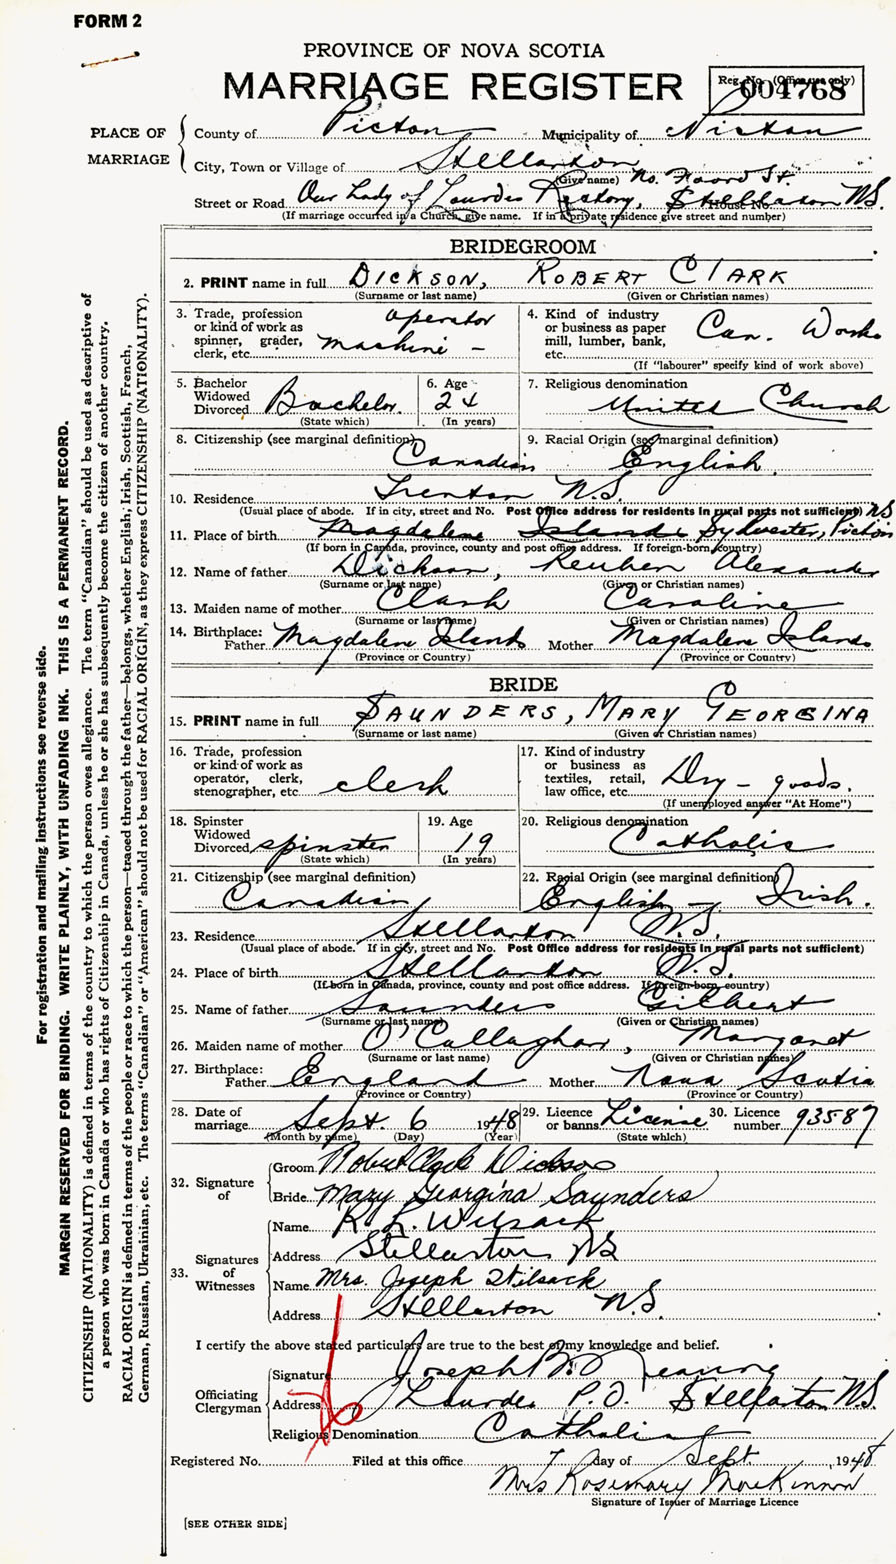 FORM 2
PROVINCE OF NOVA SCOTIA
MARRIAGE REGISTER
Reg. No. (Office use only)
004768
PLACE OF MARRIAGE
County of Pictou Municipality of Pictou
City, Town or Village of Stellarton
(Give name) No. Foord St.
Street or Road Our Lady of Lourdes Rectory, Stellarton N.S.
House No.
(If marriage occurred in a Church, give name. If in a private residence give street and number)
BRIDEGROOM
2. PRINT name in full DICKSON, ROBERT CLARK
(Surname or last name) (Given or Christian names)
3. Trade, profession or kind of work as spinner, grader, clerk, etc. operator machine -
4. Kind of industry or business as paper mill, lumber, bank, etc. Car. Works
(If "labourer" specify kind of work above)
5. Bachelor Widowed Divorced Bachelor.
(State which)
6. Age 24
(In years)
7. Religious denomination United Church
8. Citizenship (see marginal definition) Canadian
9. Racial Origin (see marginal definition) English
10. Residence Trenton N.S.
(Usual place of abode. If in city, street and No. Post Office address for residents in rural parts not sufficient) NS
11. Place of birth Magdalene Islands Sylvester, Pictou
(If born in Canada, province, county and post office address. If foreign-born, country)
12. Name of father Dickson, Reuben Alexander
(Surname or last name) (Given or Christian names)
13. Maiden name of mother Clark Caroline
(Surname or last name) (Given or Christian names)
14. Birthplace: Father Magdalen Islands Mother Magdalen Islands
(Province or Country) (Province or Country)
BRIDE
15. PRINT name in full SAUNDERS, MARY GEORGINA
(Surname or last name) (Given or Christian names)
16. Trade, profession or kind of work as operator, clerk, stenographer, etc. clerk
17. Kind of industry or business as textiles, retail, law office, etc. Dry - goods.
(If unemployed answer "At Home")
18. Spinster Widowed Divorced spinster
(State which)
19. Age 19
(In years)
20. Religious denomination Catholic
21. Citizenship (see marginal definition) Canadian
22. Racial Origin (see marginal definition) English - Irish.
23. Residence Stellarton N.S.
(Usual place of abode. If in city, street and No. Post Office address for residents in rural parts not sufficient)
24. Place of birth Stellarton N.S.
(If born in Canada, province, county and post office address. If foreign-born, country)
25. Name of father Saunders Gilbert
(Surname or last name) (Given or Christian names)
26. Maiden name of mother O'Callaghan, Margaret
(Surname or last name) (Given or Christian names)
27. Birthplace: Father England Mother Nova Scotia
(Province or Country) (Province or Country)
28. Date of marriage Sept. 6 1948
(Month by name) (Day) (Year)
29. Licence or banns License
(State which)
30. Licence number 93587
32. Signature of
Groom Robert Clark Dickson
Bride Mary Georgina Saunders
33. Signatures of Witnesses
Name R. L. Wilsack
Address Stellarton NS
Name Mrs. Joseph Wilsack
Address Stellarton N.S.
I certify the above stated particulars are true to the best of my knowledge and belief.
Officiating Clergyman
Signature Joseph B.
Address Lourdes P.O. Stellarton N.S.
Religious Denomination Catholic
Registered No. Filed at this office 7 day of Sept. , 1948
Mrs Rosemary MacKinnon
Signature of Issuer of Marriage Licence
[SEE OTHER SIDE]
For registration and mailing instructions see reverse side.
MARGIN RESERVED FOR BINDING. WRITE PLAINLY, WITH UNFADING INK. THIS IS A PERMANENT RECORD.
CITIZENSHIP (NATIONALITY) is defined in terms of the country to which the person owes allegiance. The term "Canadian" should be used as descriptive of
a person who was born in Canada or who has rights of Citizenship in Canada, unless he or she has subsequently become the citizen of another country.
RACIAL ORIGIN is defined in terms of the people or race to which the person—traced through the father—belongs, whether English, Irish, Scottish, French,
German, Russian, Ukrainian, etc. The terms "Canadian" or "American" should not be used for RACIAL ORIGIN, as they express CITIZENSHIP (NATIONALITY).